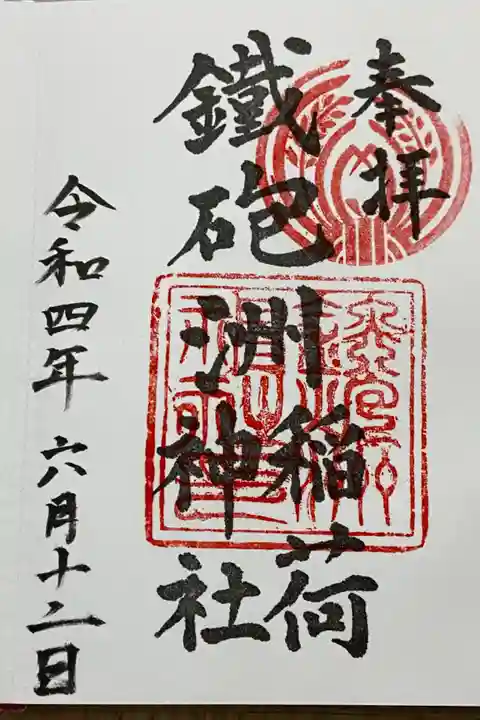 奉拝
鐵砲洲稲荷神社
令和四年 六月十二日